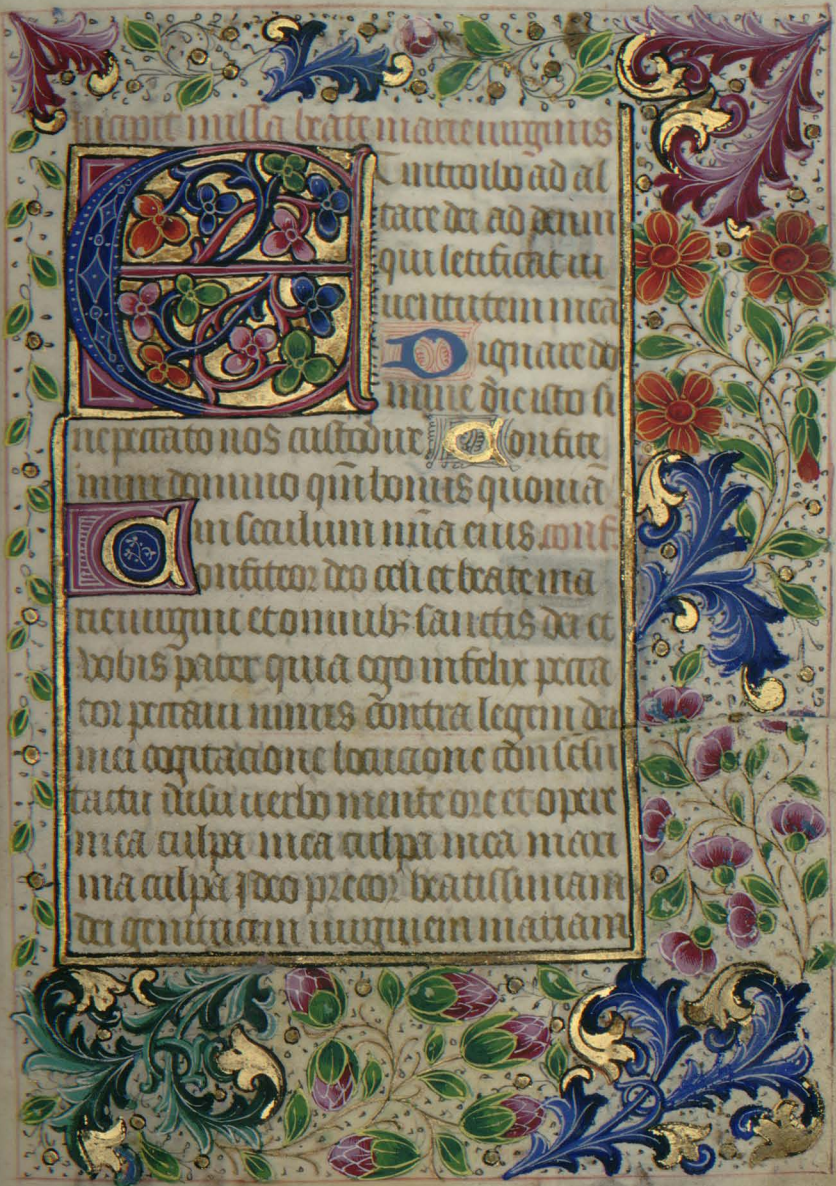 Incipit missa beate marie uirginis
Et introibo ad al
tare dei ad deum
qui letificat iu
uentutem meā
Dignare do
mine die isto si
ne peccato nos custodire Confite
mini domino qm̄ bonus quoniā
in seculum mīa eius. conf.
Confiteor deo celi et beate ma
rie uirgini et omnibꝫ sanctis dei et
vobis pater quia ego infelix pecca
tor peccaui nimis contra legem dei
mei cogitacione locucione consēsu
tactu uisu uerbo mente ore et opere
mea culpa mea culpa mea maxi
ma culpa Ideo precor beatissimam
dei genitricem uirginem mariam